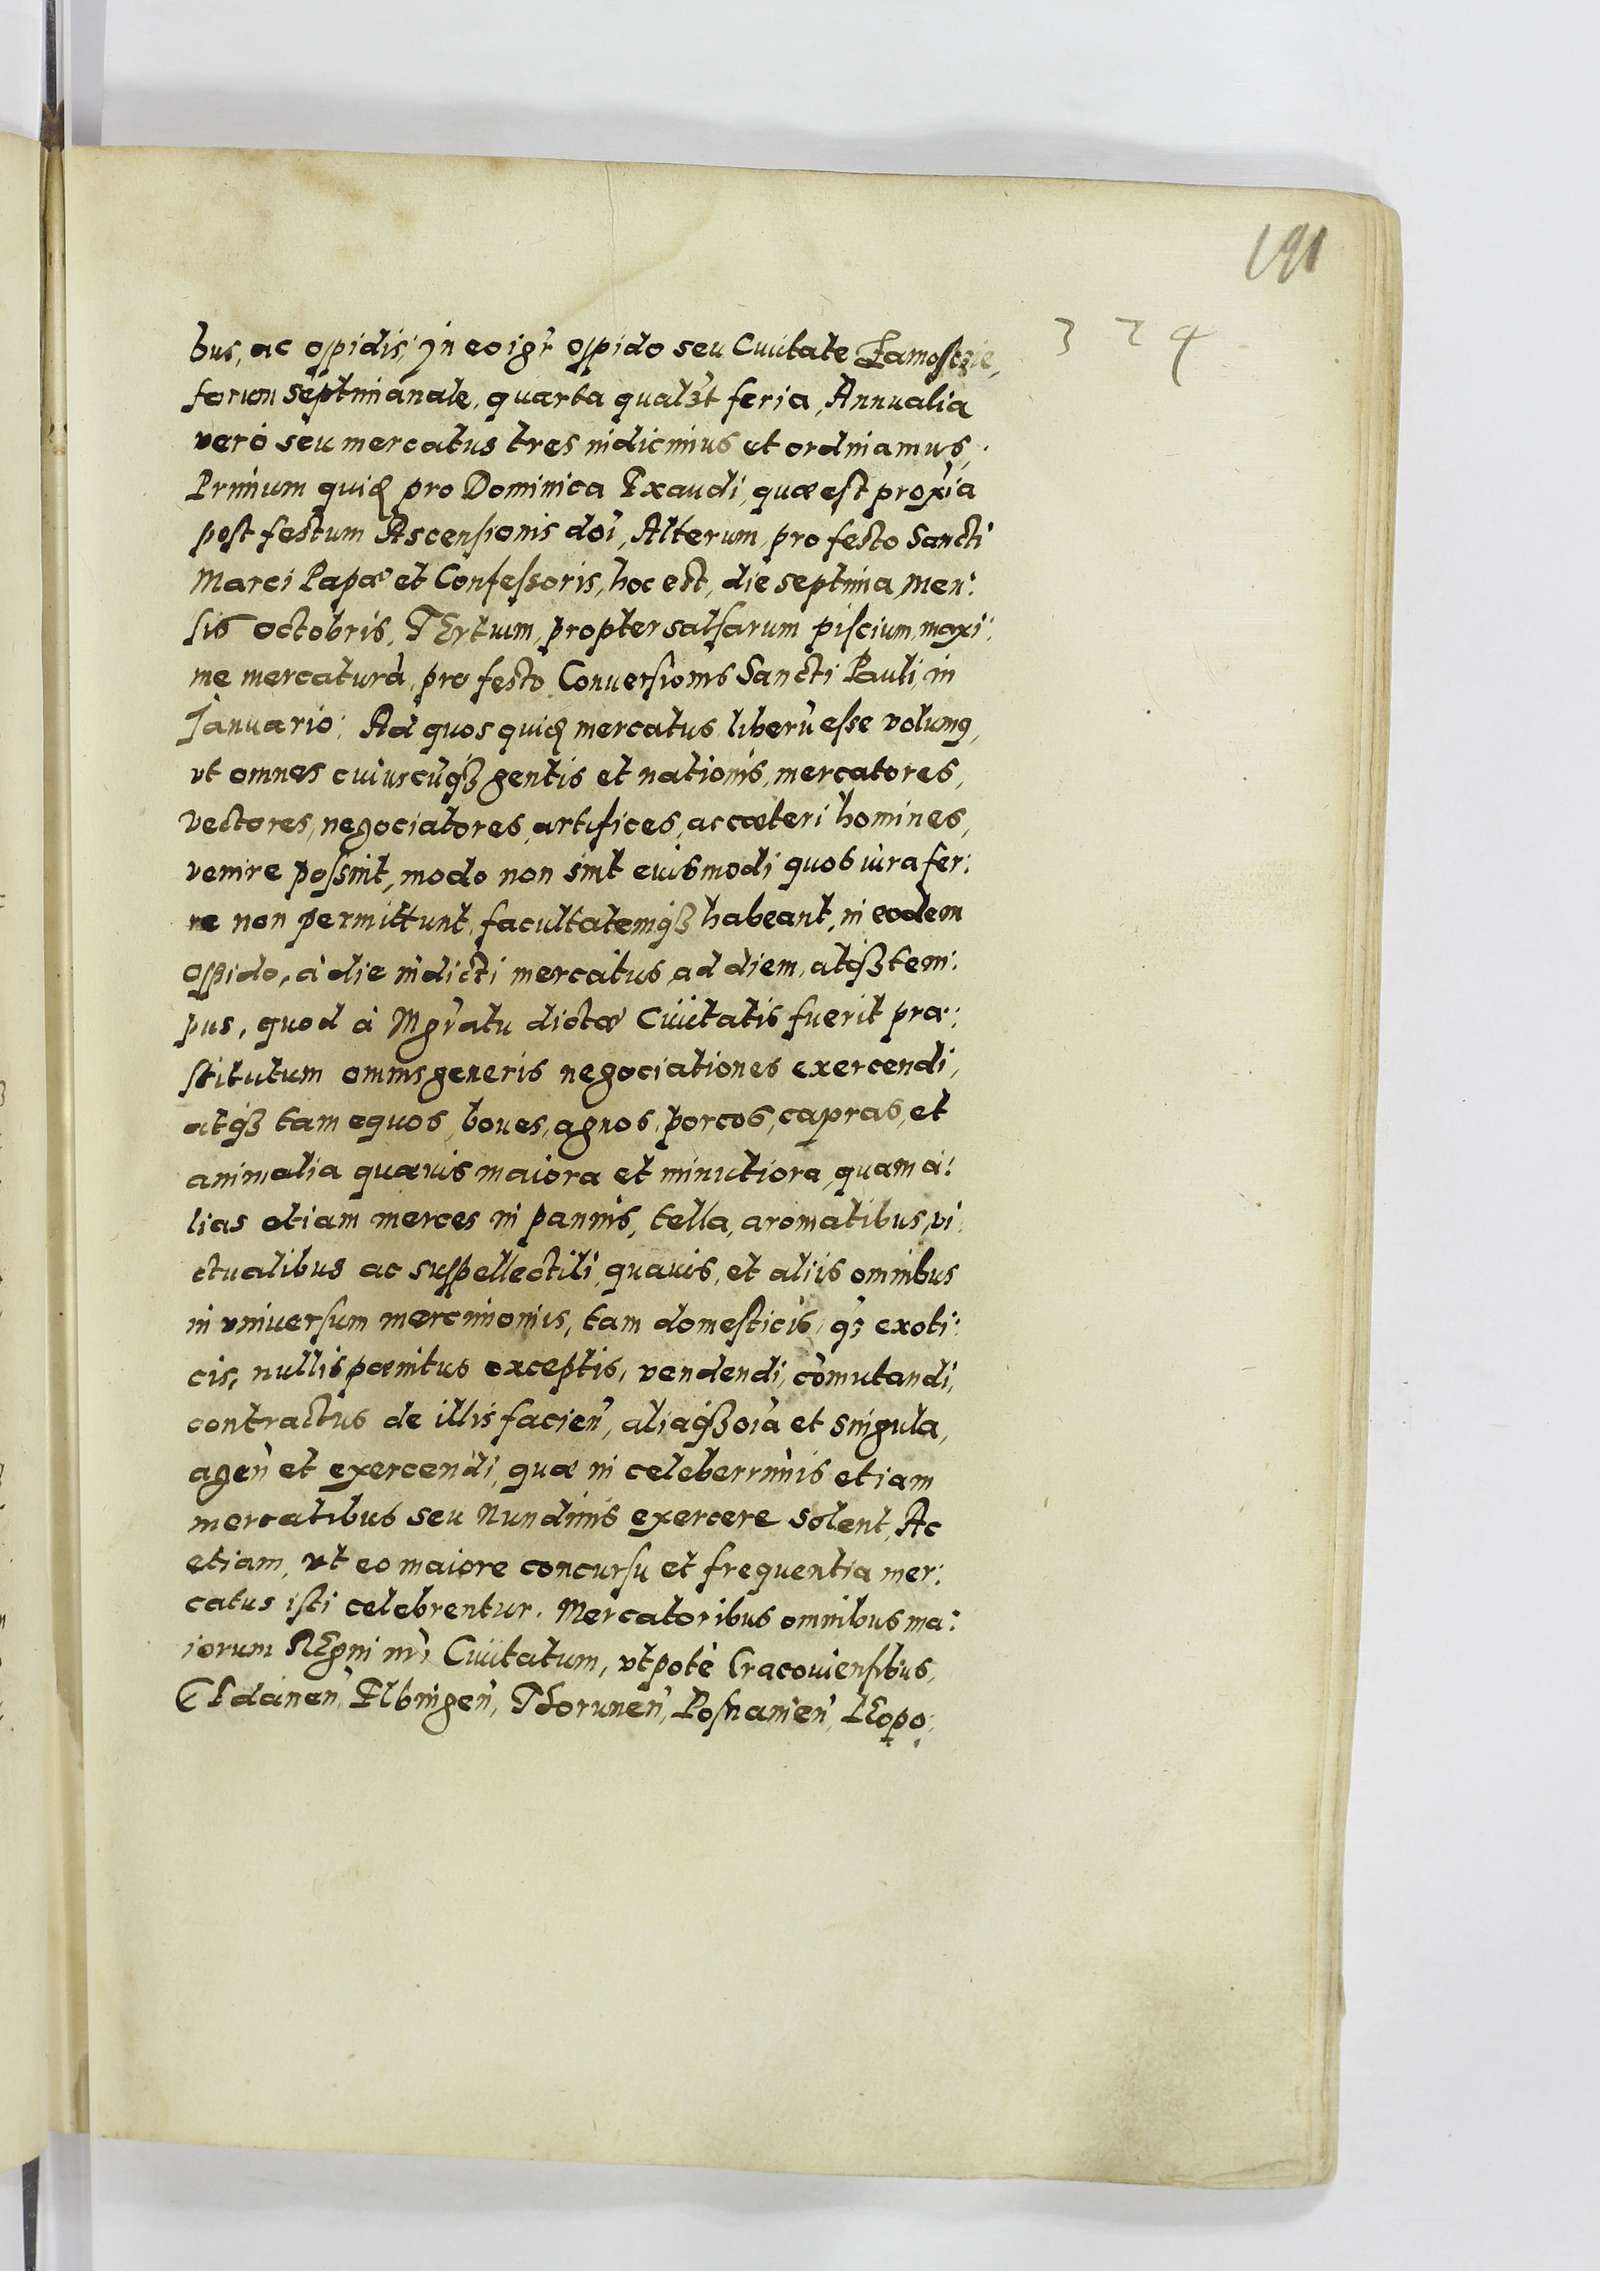 191
324
bus, ac oppidis, In eo igr oppido seu Ciuitate Zamosczie,
forum septimanale, quarta qualzt feria, Annualia
vero seu mercatus tres indicimus et ordinamus,
Primum quid pro Dominica Exaudi, quæ est proxia
post festum Ascensionis doi, Alterum, pro festo Sancti
Marci Papæ et Confessoris, hoc est, die septima, Men:
sis octobris, TErtium, propter salsarum piscium, maxi:
me mercaturà, pro festo Conuersionis Sancti Pauli, in
Januario: Ad quos quid mercatus, liberù esse volumg,
vt omnes cuiuscùqz gentis et nationis, mercatores,
vectores, negociatores, artifices, ac cœteri homines,
venire possint, modo non sint eiusmodi quos iura fer:
re non permittunt, facultatemqz habeant, in eodem
oppido, à die indicti mercatus, ad diem, atqz tem:
pus, quod à Mgratu dictæ Ciuitatis fuerit præ:
stitutum omnis generis negociationes exercendi,
atqz tam equos, boues, agnos, porcos, capras, et
animalia quæuis maiora et minutiora, quam a:
lias etiam merces in pannis, tella, aromatibus, vi:
ctualibus ac suppellectili, quauis, et aliis omnibus
in vniuersum mercimoniis, tam domesticis, qz exoti:
cis, nullis pœnitus exceptis, vendendi, còmutandi,
contractus de illis facien, aliaqz oia et singula,
agen et exercendi, quæ in celeberrimis etiam
mercatibus seu Nundinis exercere solent, Ac
etiam, vt eo maiore concursu et frequentia mer:
catus isti celebrentur. Mercatoribus omnibus ma:
iorum REgni nri Ciuitatum, vtpote Cracouiensibus,
GEdanen, Elbingen, Thorunen, Posnanien, LEopo: